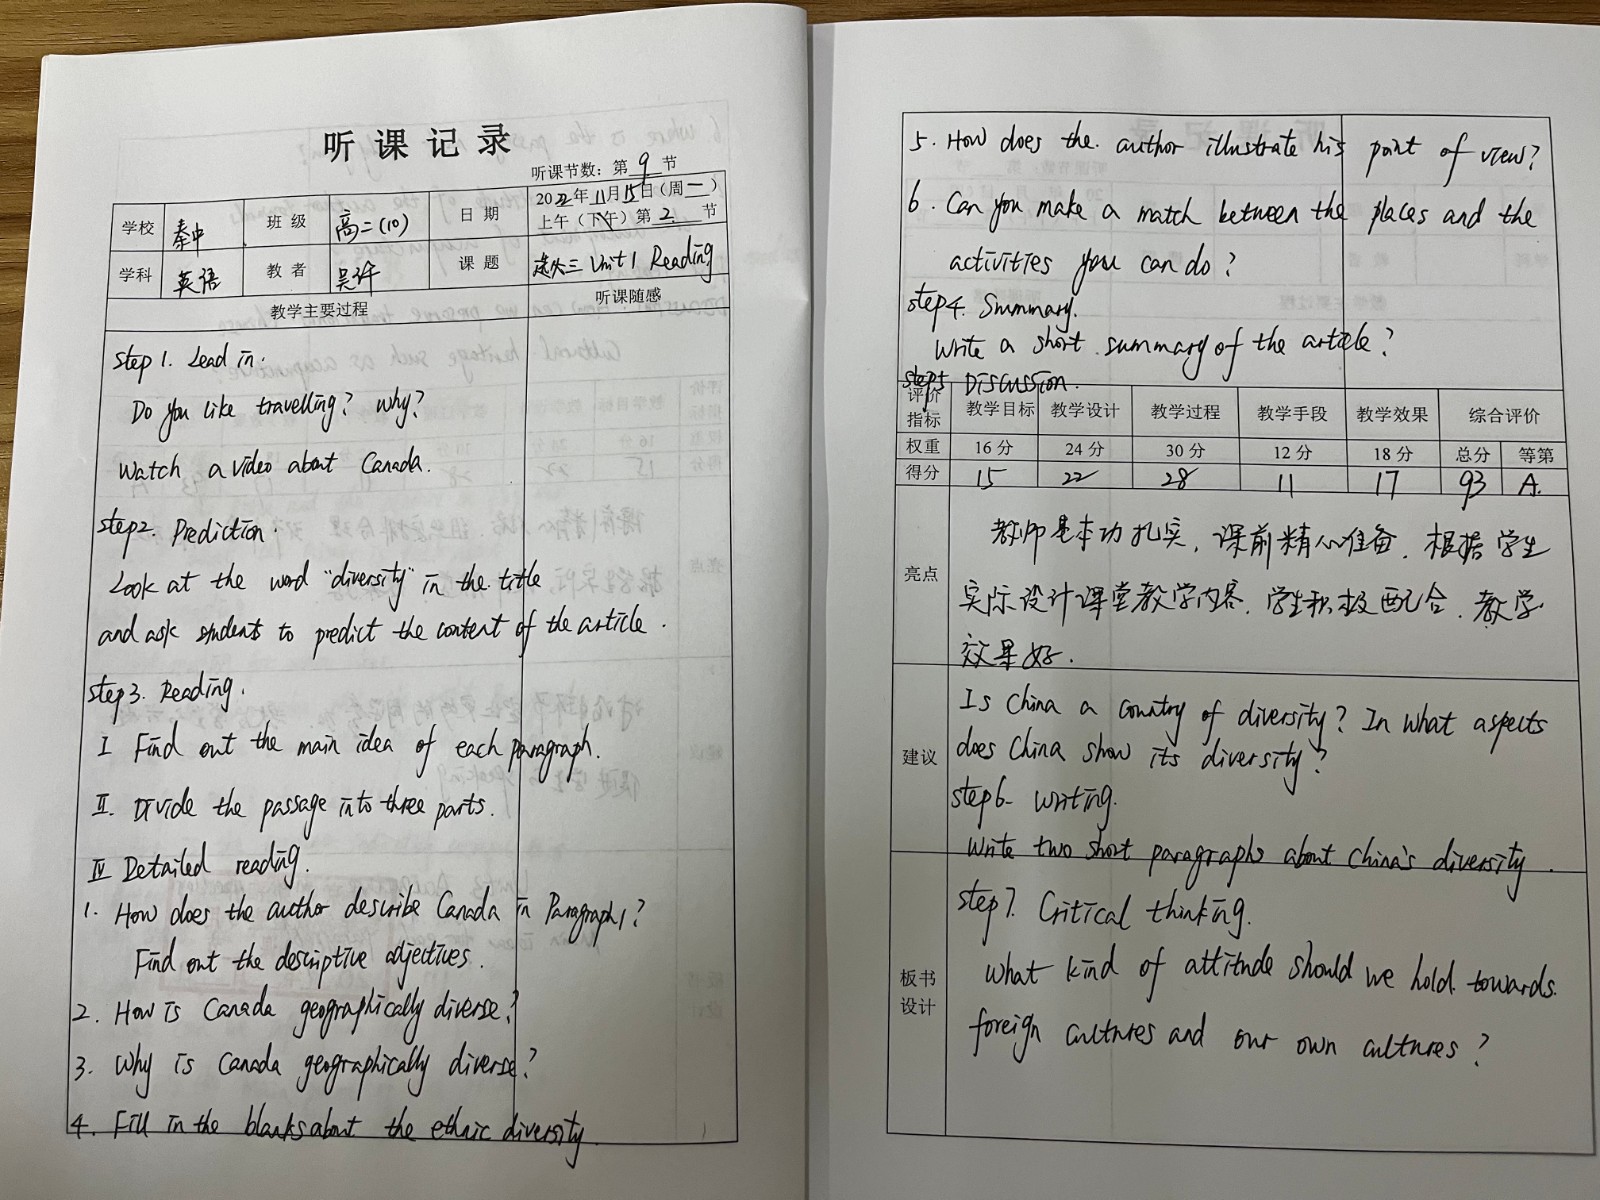 听课记录
听课节数：第 9 节
学校 秦中 班级 高二(10) 日期 2022年11月15日(周一)
上午（下午）第2节
学科 英语 教者 课题 选必三 Unit 1 Reading
教学主要过程 听课随感
Step 1. Lead in.
Do you like travelling? Why?
Watch a video about Canada.
Step2. Prediction.
Look at the word "diversity" in the title
and ask student to predict the content of the article.
Step3. Reading.
I Find out the main idea of each paragraph.
II. Divide the passage into three parts.
IV Detailed reading.
1. How does the author describe Canada in Paragraph 1?
Find out the descriptive adjectives.
2. How is Canada geographically diverse?
3. Why is Canada geographically diverse?
4. Fill in the blanks about the ethnic diversity.
5. How does the author illustrate his point of view?
6. Can you make a match between the places and the
activities you can do?
Step4. Summary.
Write a short summary of the article?
Step5 Discussion.
评价指标 教学目标 教学设计 教学过程 教学手段 教学效果 综合评价
权重 16分 24分 30分 12分 18分 总分 等第
得分 15 22 28 11 17 93 A
亮点
教师基本功扎实，课前精心准备．根据学生
实际设计课堂教学内容．学生积极配合．教学
效果好．
建议
Is China a country of diversity? In what aspects
does China show its diversity?
Step6. Writing.
Write two short paragraphs about China's diversity.
板书设计
Step7. Critical thinking.
What kind of attitude should we hold towards
foreign cultures and our own cultures?